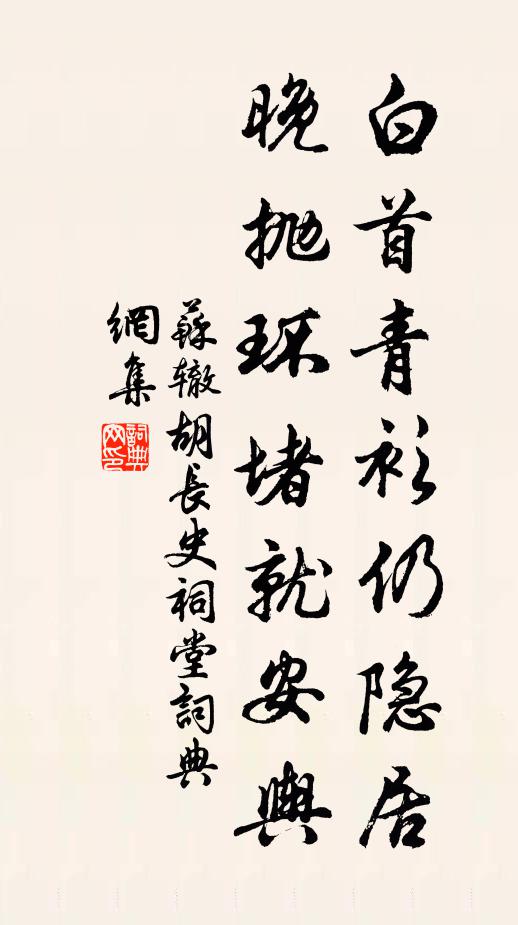 白首青衫仍隐居
晚抛环堵就安舆
蘇辙胡長史祠堂詞典
網集
詞典网印